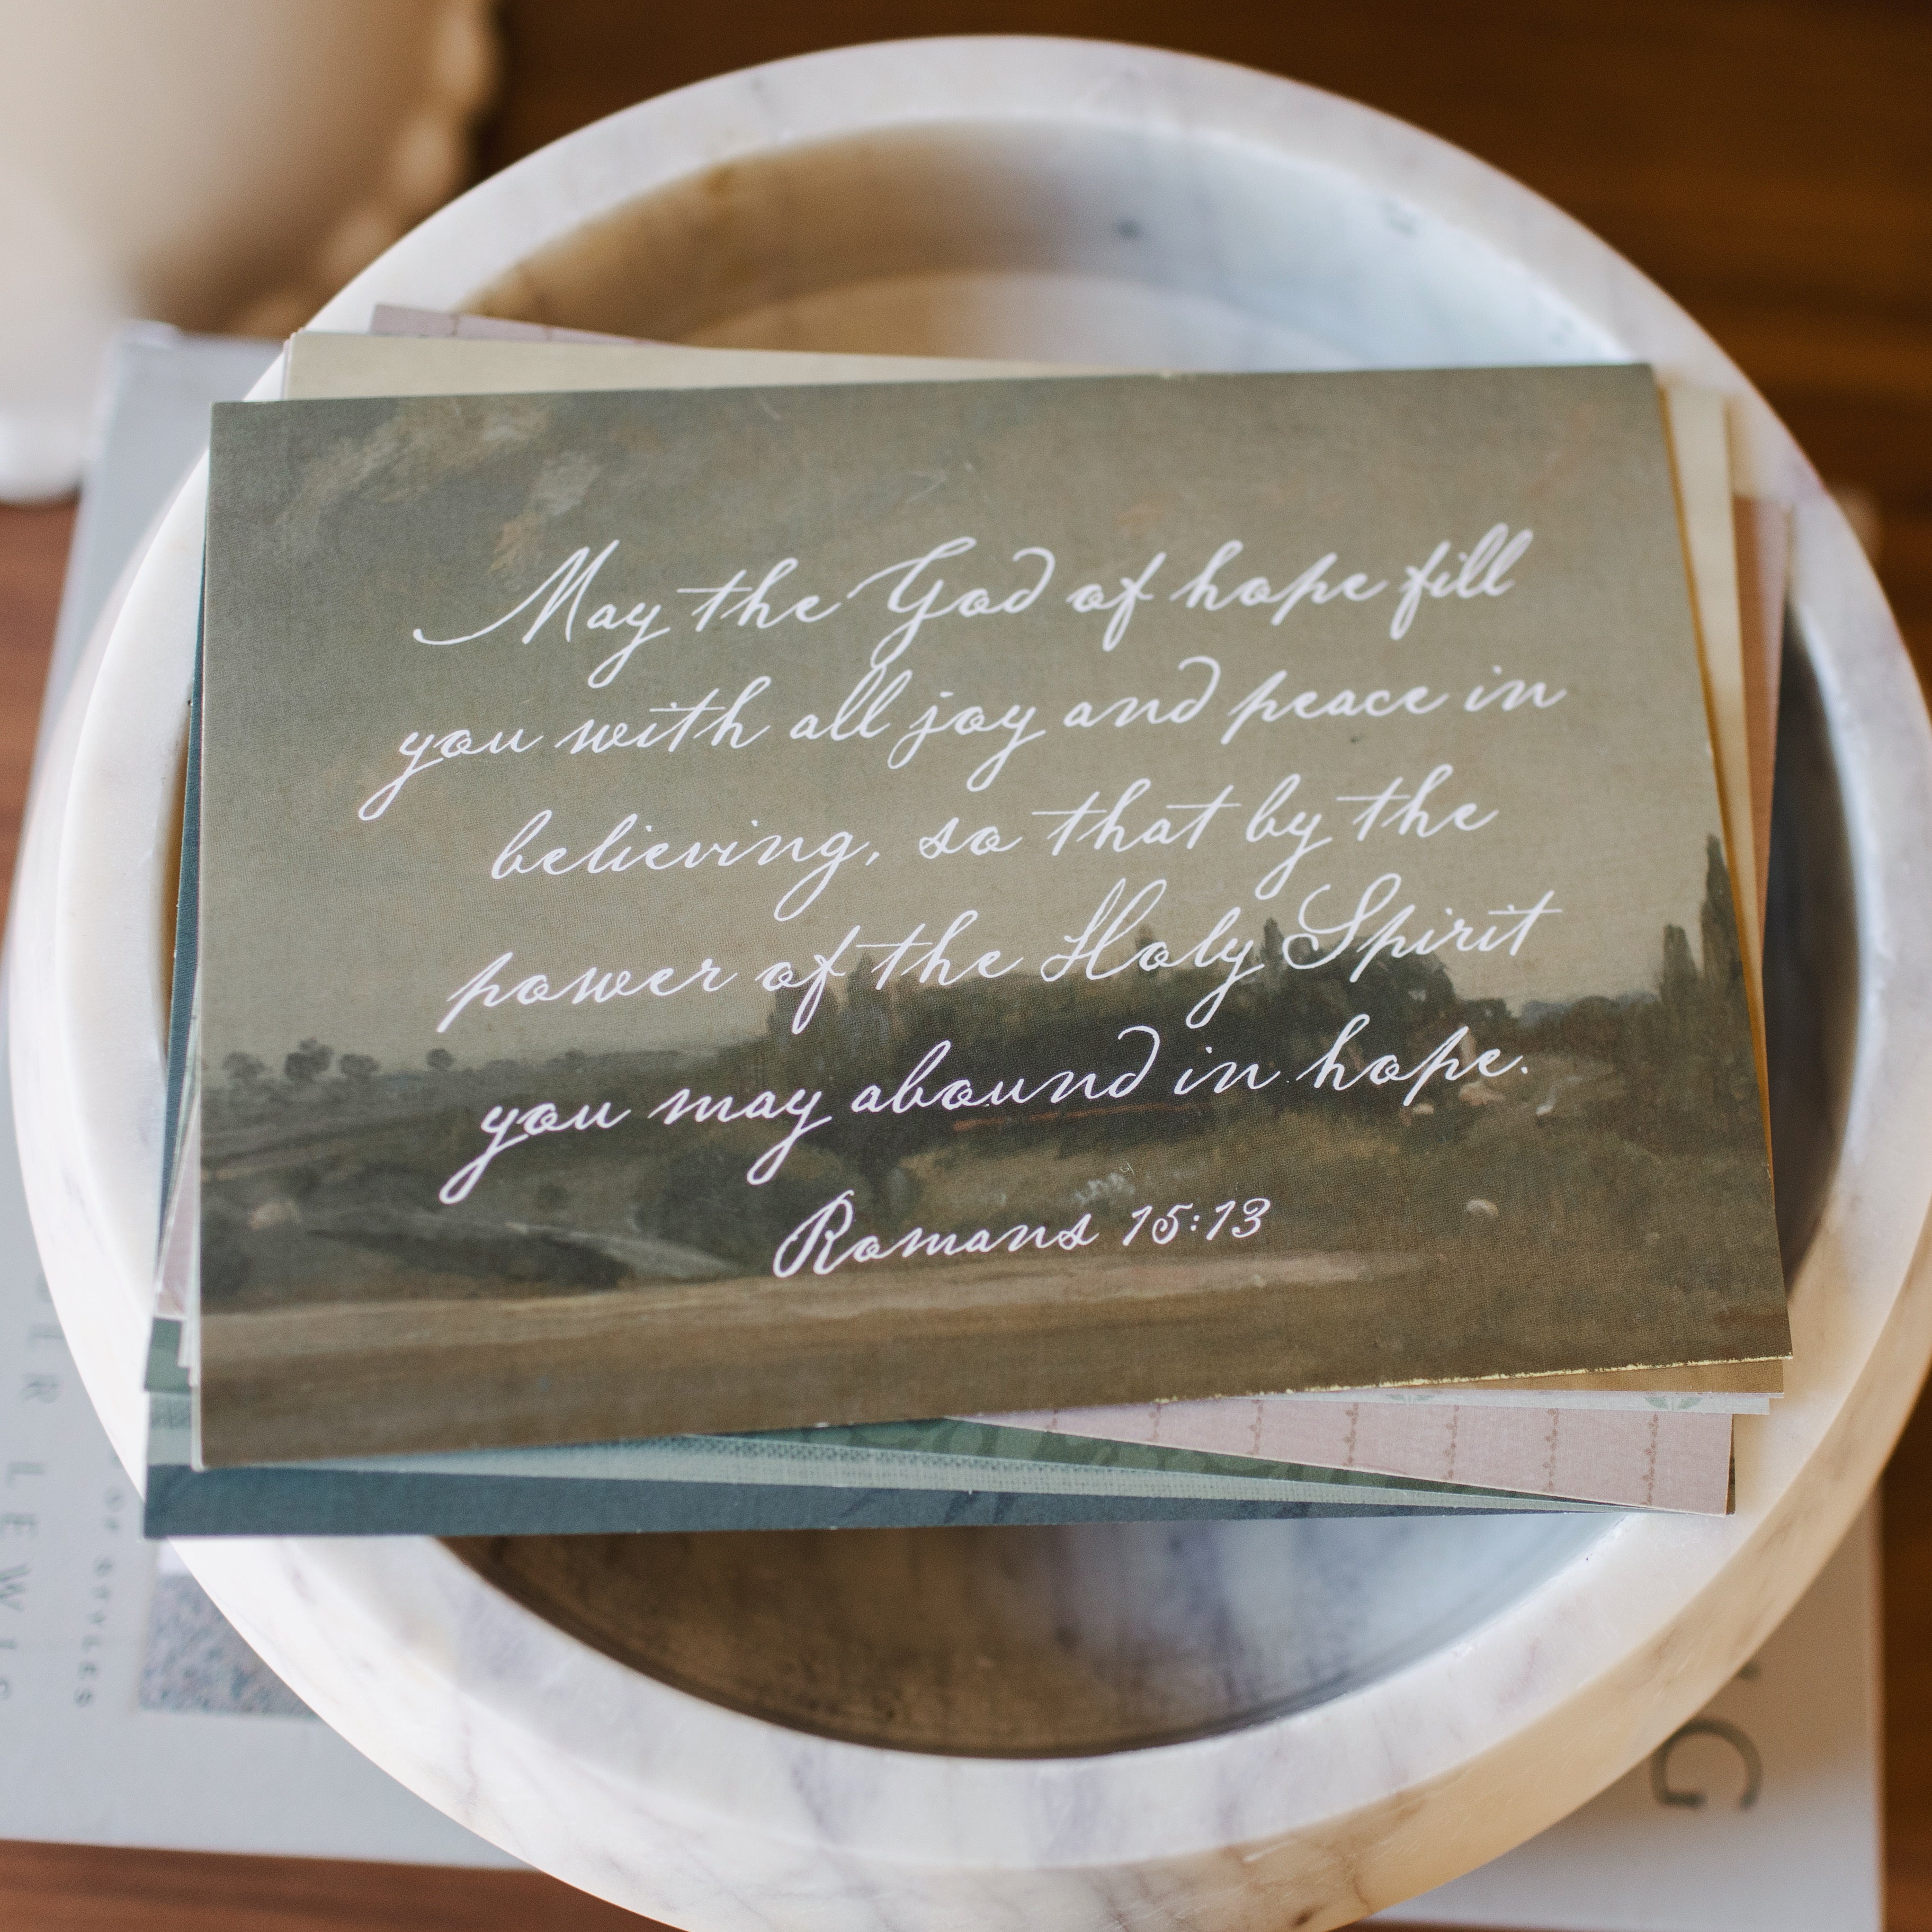 May the God of hope fill
you with all joy and peace in
believing, so that by the
power of the Holy Spirit
you may abound in hope.
Romans 15:13
LEWIS
OF STYLES
G